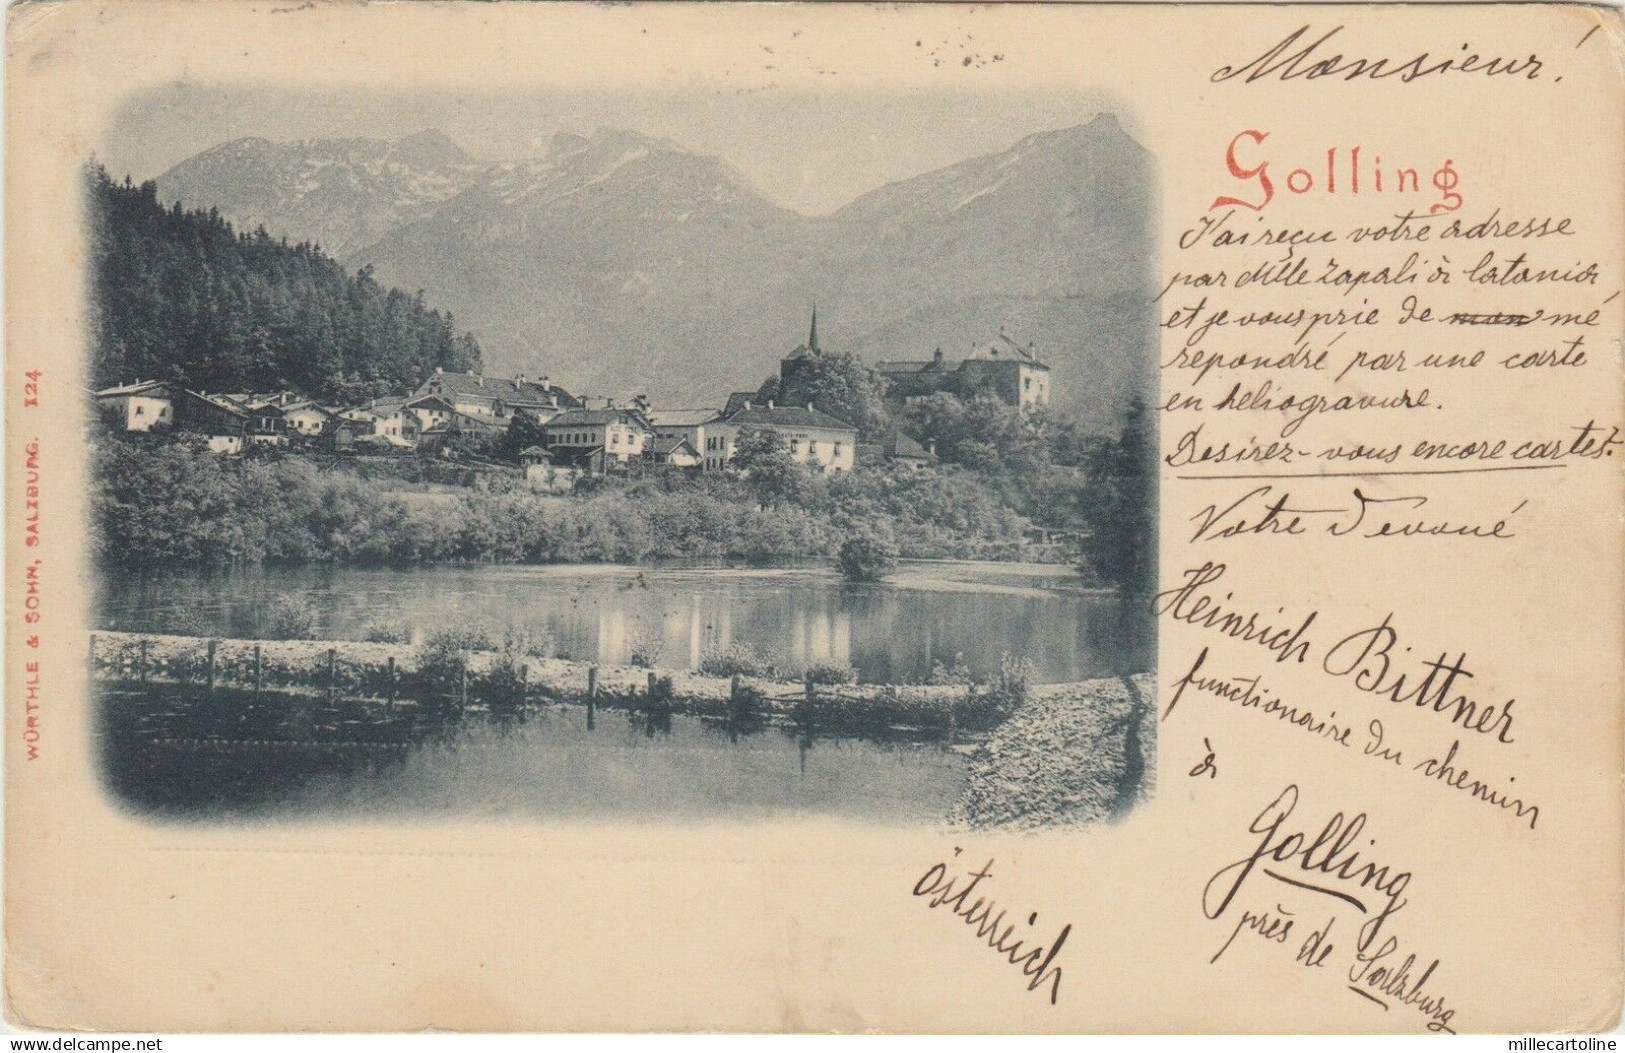 Monsieur!
Golling
J'ai reçu votre adresse
par Mlle Zapali à Catania
et je vous prie de mon mé
repondré par une carte
en heliogravure.
Desirez-vous encore cartes?
Votre Devoué
Heinrich Bittner
functionaire du chemin
à
Golling
près de Salzburg
Österreich
WÜRTHLE & SOHN, SALZBURG. 124
www.delcampe.net
millecartoline